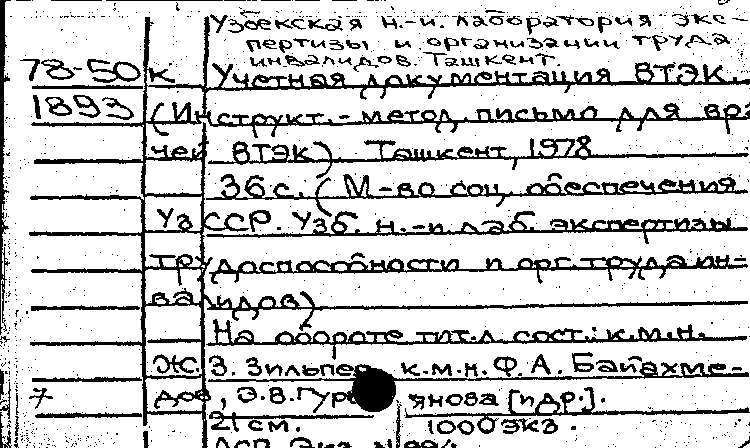 Узбекская н.-и. лаборатория экс-
пертизы и организации труда
инвалидов. Ташкент.
78-50 к Учетная документация ВТЭК.
1893 (Инструкт.-метод. письмо для вра
чей ВТЭК). Ташкент, 1978
36 с. (М-во соц. обеспечения
УзССР. Узб. н.-и. лаб. экспертизы
трудоспособности и орг. труда ин-
валидов)
На обороте тит. л. сост.: к.м.н.
Ж. З. Зильпер, к.м.н. Ф. А. Байахме-
дов, Э. В. Гурь янова [и др.].
21 см. 1000 экз.
ДСП Экз. №